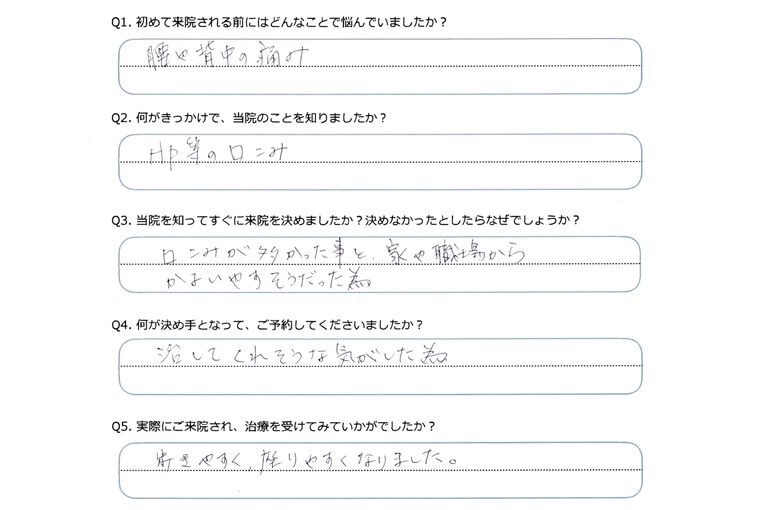 Q1. 初めて来院される前にはどんなことで悩んでいましたか？
腰や背中の痛み
Q2. 何がきっかけで、当院のことを知りましたか？
HP等の口こみ
Q3. 当院を知ってすぐに来院を決めましたか？決めなかったとしたらなぜでしょうか？
口こみが多かった事と、家や職場から
かよいやすそうだった為。
Q4. 何が決め手となって、ご予約してくださいましたか？
治してくれそうな気がした為。
Q5. 実際にご来院され、治療を受けてみていかがでしたか？
歩きやすく、座りやすくなりました。